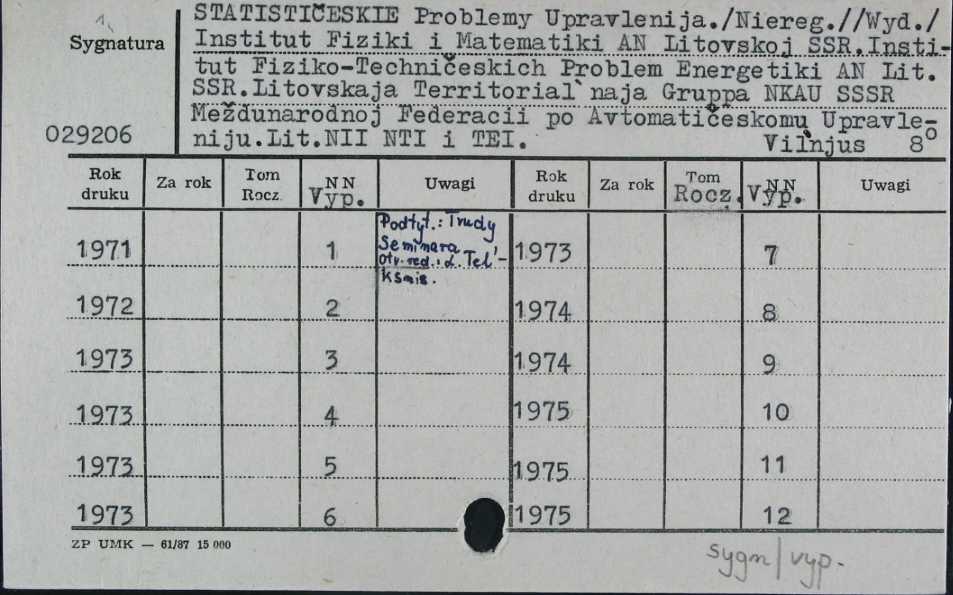 1.
Sygnatura
029206
STATISTIČESKIE Problemy Upravlenija./Niereg.//Wyd./
Institut Fiziki i Matematiki AN Litovskoj SSR.Insti-
tut Fiziko-Techničeskich Problem Energetiki AN Lit.
SSR.Litovskaja Territorial`naja Gruppa NKAU SSSR
Meždunarodnoj Federacii po Avtomatičeskomu Upravle-
niju.Lit.NII NTI i TEI. Vil`njus 8°
Rok druku Za rok Tom Rocz. NN Vyp. Uwagi Rok druku Za rok Tom Rocz. NN Vyp. Uwagi
1971 1 Podtyt.: Trudy Seminara otv. red.: L. Tel'- ksnis. 1973 7
1972 2 1974 8
1973 3 1974 9
1973 4 1975 10
1973 5 1975 11
1973 6 1975 12
ZP UMK — 61/87 15 000
sygn/vyp.